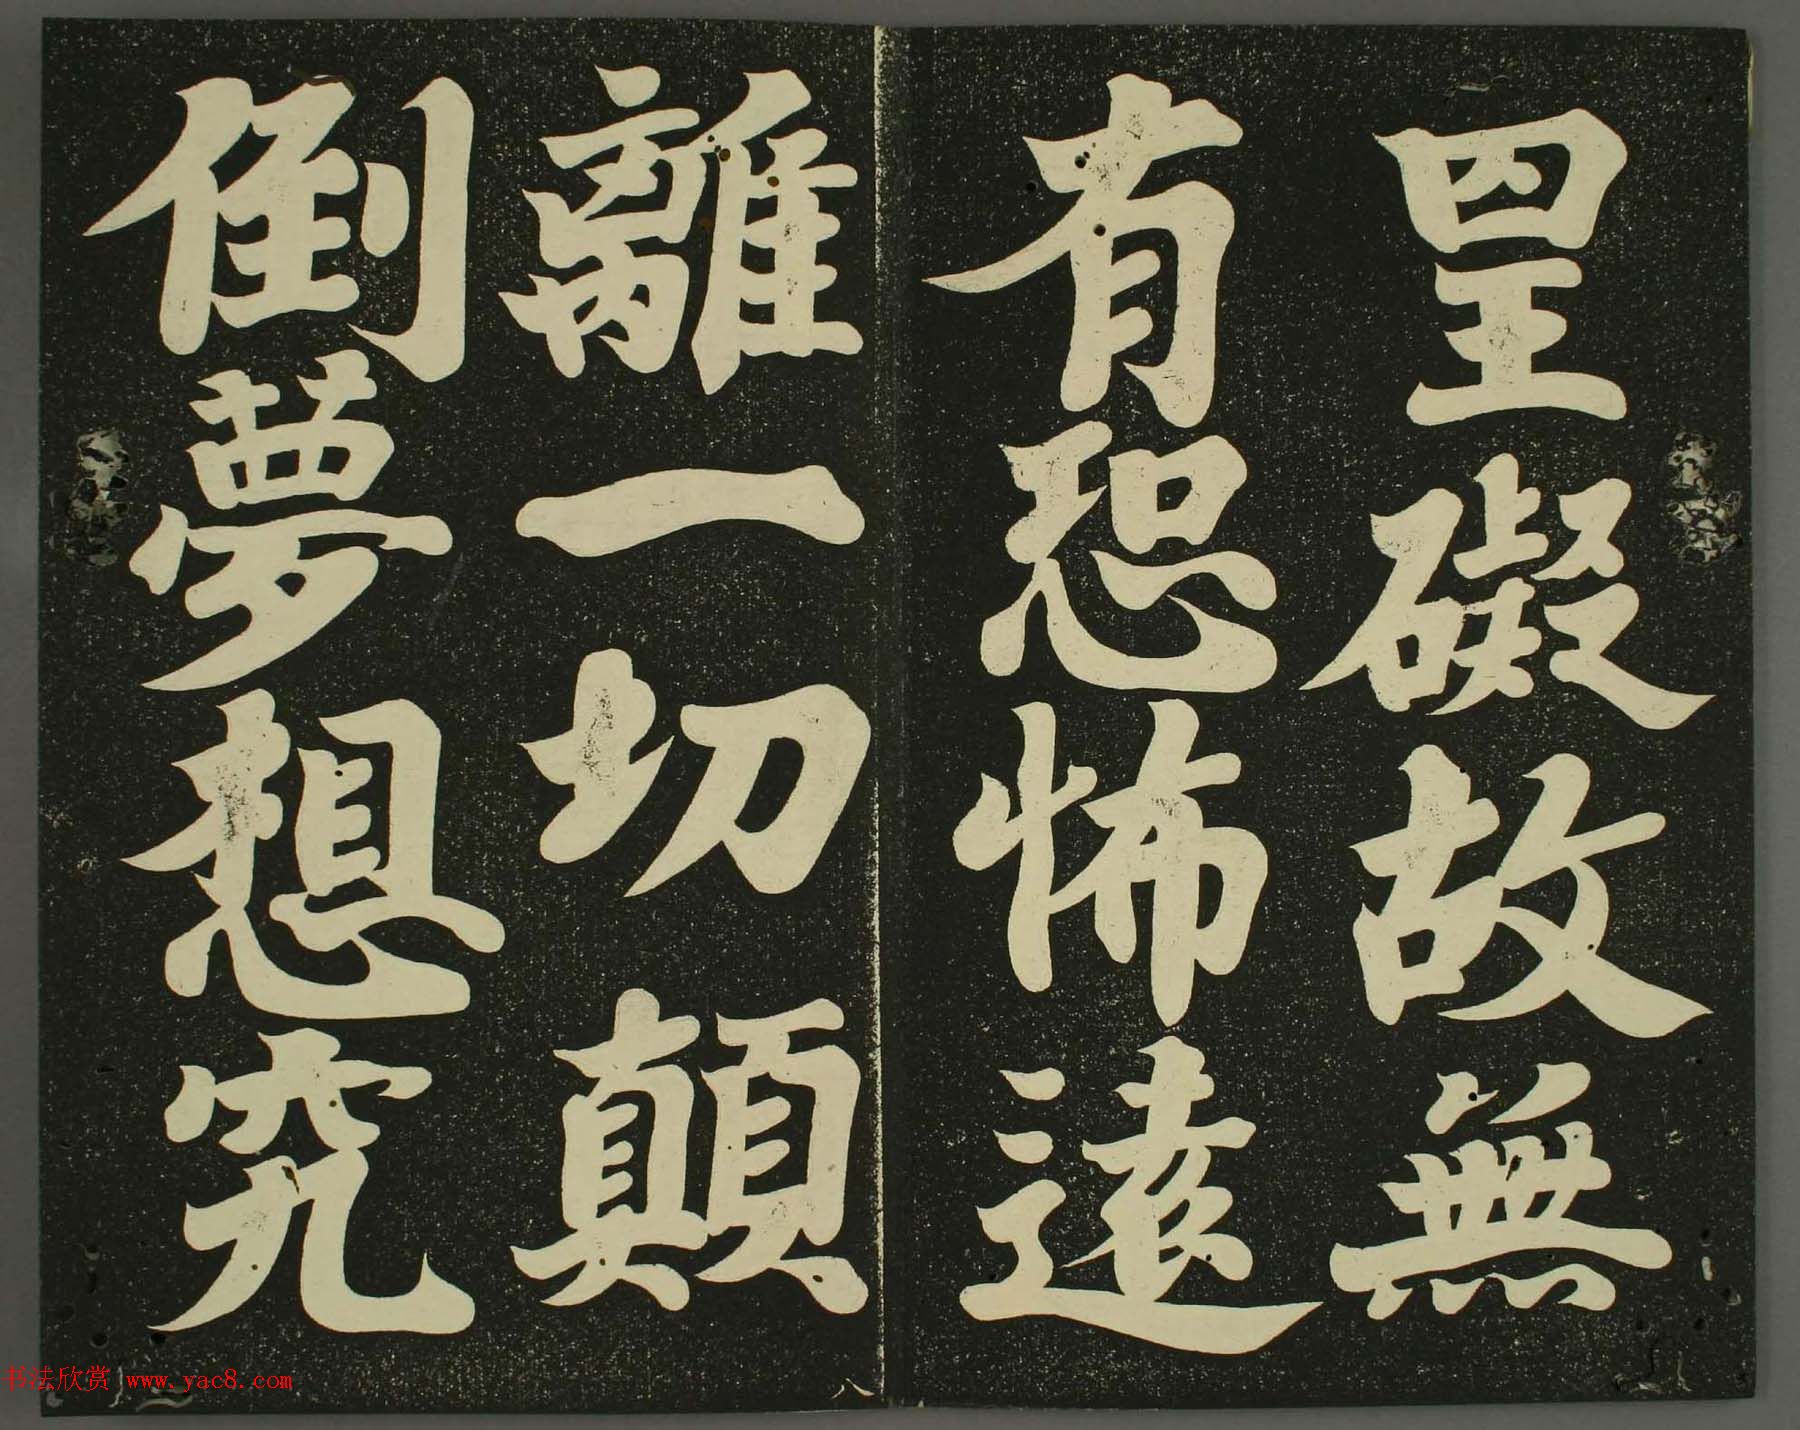 罣礙故無
有恐怖遠
離一切顛
倒夢想究
书法欣赏 www.yac8.com